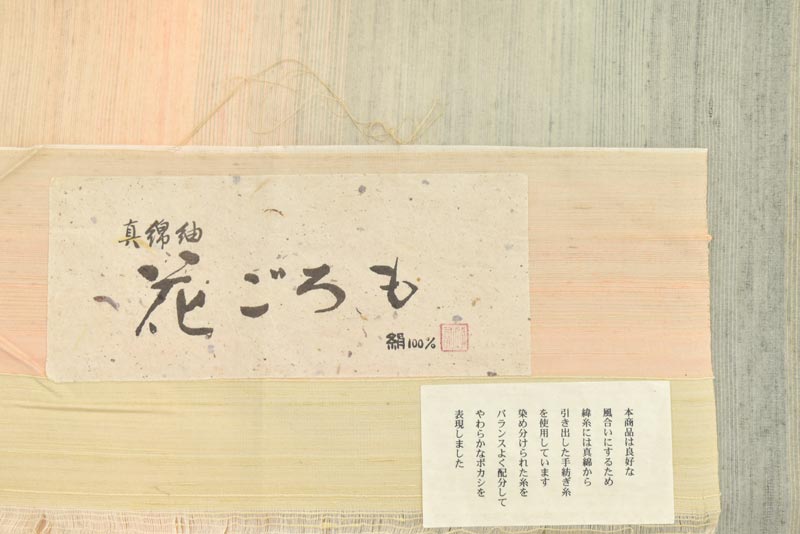 真綿紬
花ごろも
絹100%
本商品は良好な
風合いにするため
緯糸には真綿から
引き出した手紡ぎ糸
を使用しています
染め分けられた糸を
バランスよく配分して
やわらかなボカシを
表現しました